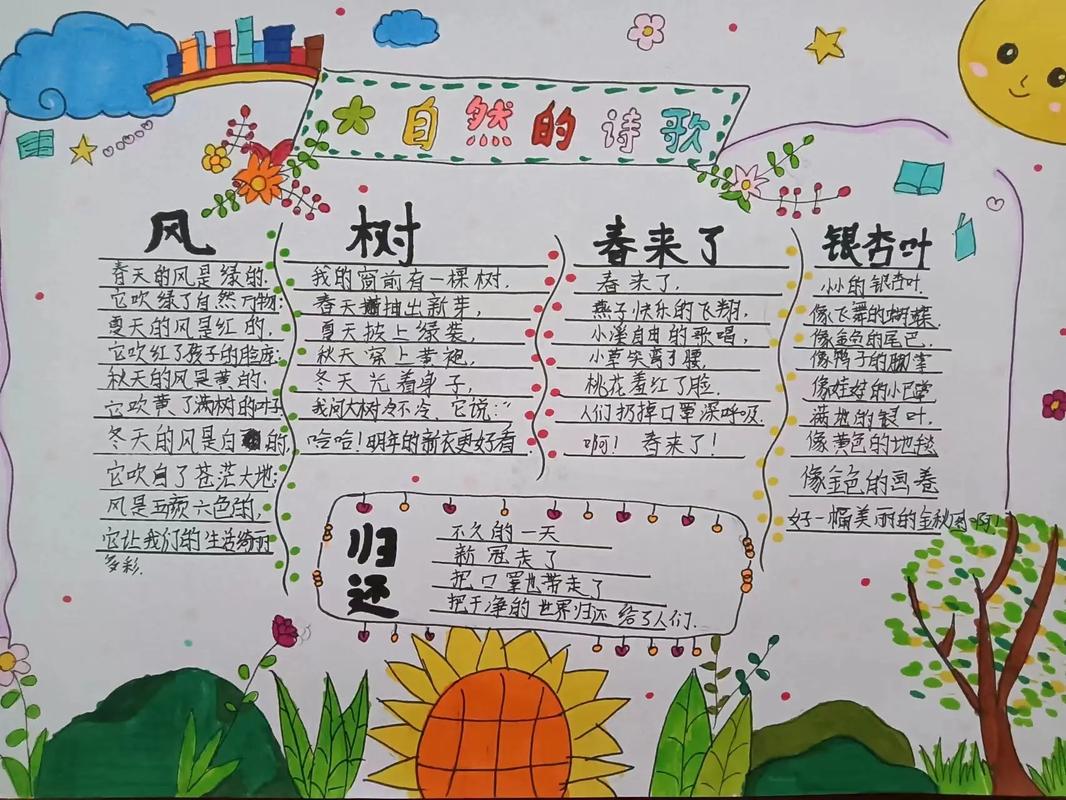 大自然的诗歌
风
春天的风是绿的.
它吹绿了自然万物;
夏天的风是红的.
它吹红了孩子的脸庞;
秋天的风是黄的.
它吹黄了满树的叶子
冬天的风是白的,
它吹白了苍茫大地;
风是五颜六色的,
它让我们的生活绚丽
多彩.
树
我的窗前有一棵树.
春天抽出新芽,
夏天披上绿装,
秋天穿上黄袍,
冬天光着身子,
我问大树冷不冷,它说:“
哈哈!明年的新衣更好看
春来了
春来了,
燕子快乐的飞翔,
小溪自由的歌唱,
小草笑弯了腰,
桃花羞红了脸.
人们扔掉口罩深呼吸.
啊! 春来了!
银杏叶
小小的银杏叶.
像飞舞的蝴蝶.
像金色的尾巴.
像鸭子的脚掌
像娃娃的小巴掌
满地的银叶.
像黄色的地毯
像金色的画卷
好一幅美丽的金秋图啊!
归还
不久的一天
新冠走了
把口罩也带走了
把干净的世界归还给了人们.